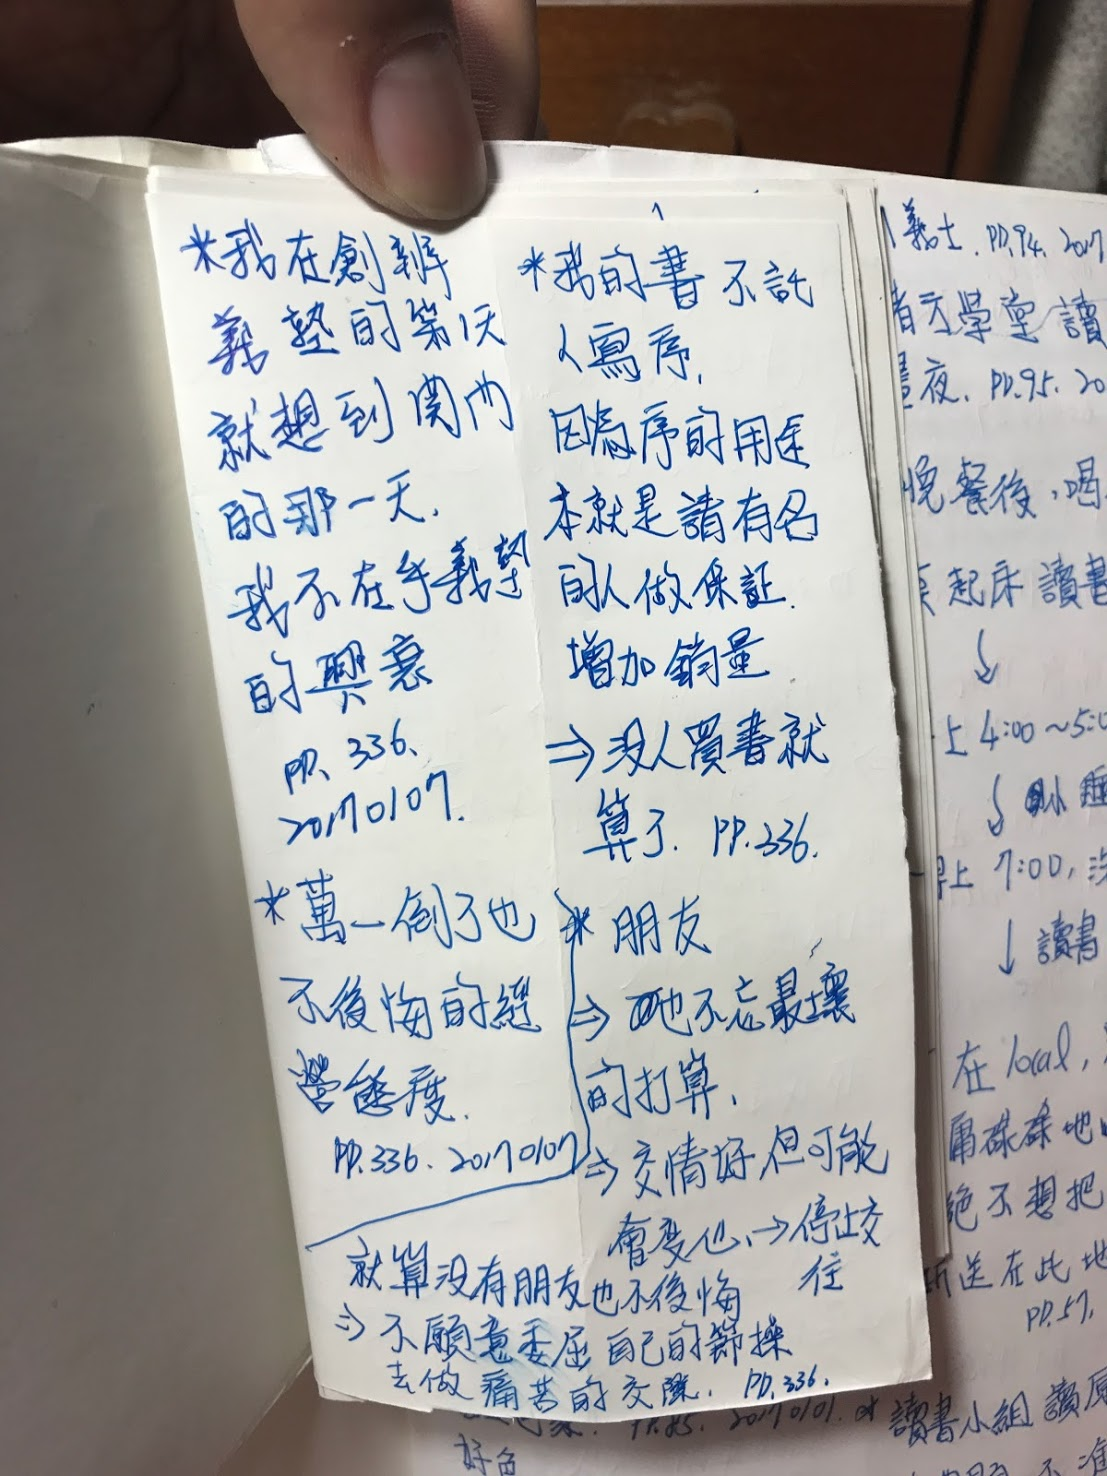 *我在創辦
義塾的第1天
就想到関門
的那一天.
我不在乎義塾
的興衰
PP. 336.
20170107.
*萬一倒了也
不後悔的經
營態度.
PP.336. 20170107
1
*我的書不託
人寫序,
因為序的用途
本就是請有名
的人做保証.
增加銷量
⇒没人買書就
算了. PP.336.
* 朋友
⇒ 也不忘最壞
的打算.
⇒交情好,但可能
會變也、→停止交
往
就算没有朋友也不後悔
⇒不願意委屈自己的節操
去做痛苦的交際. PP.336.
義士. PP.94. 2017
學堂 讀
夜. PP.95. 20
晚餐後,喝
起床 讀書
↓
上 4:00~5:0
↓ 小睡
早上 7:00,
↓ 讀書
在 local,
庸碌碌地
絕不想把
送在此地
PP.57.
PP.85. 20170101.
讀書小組 讀
好色